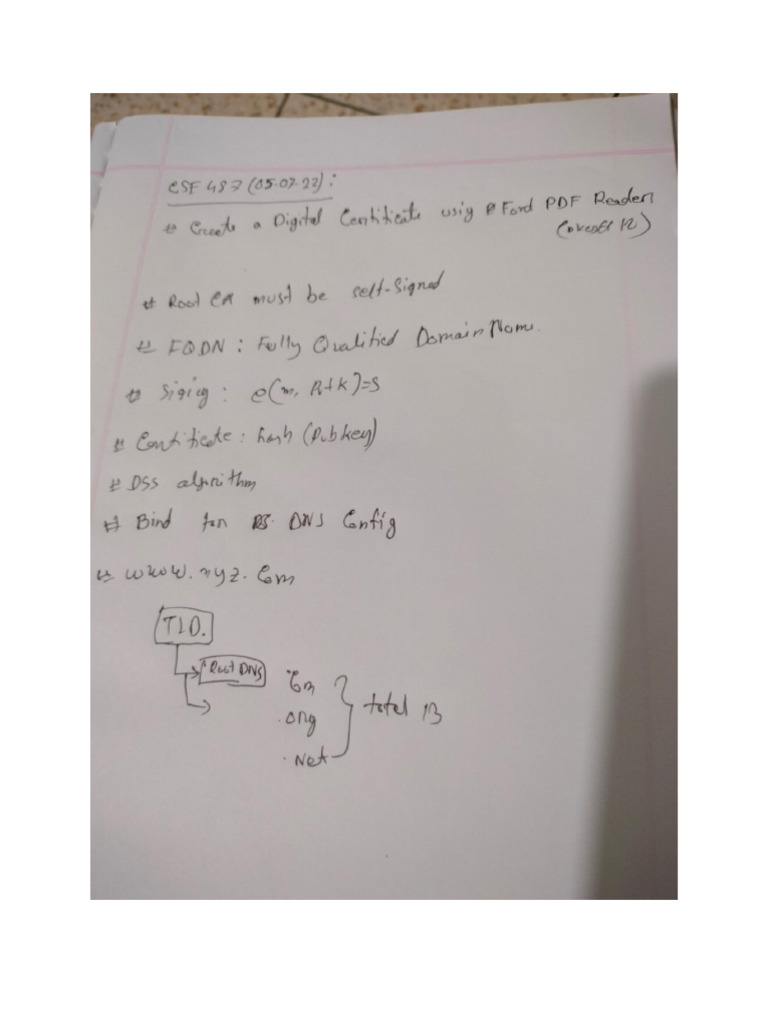 CSE 487 (05.07.22):
# Create a Digital Certificate using PDF Reader
# Root CA must be self-signed
# FQDN : Fully Qualified Domain Name.
# Signing : e(m, PrtK)=S
# Certificate : hash (Pubkey)
# DSS algorithm
# Bind for DNS Config
# www.xyz.com
TLD.
Root DNS
.com
.org
total 13
.Net